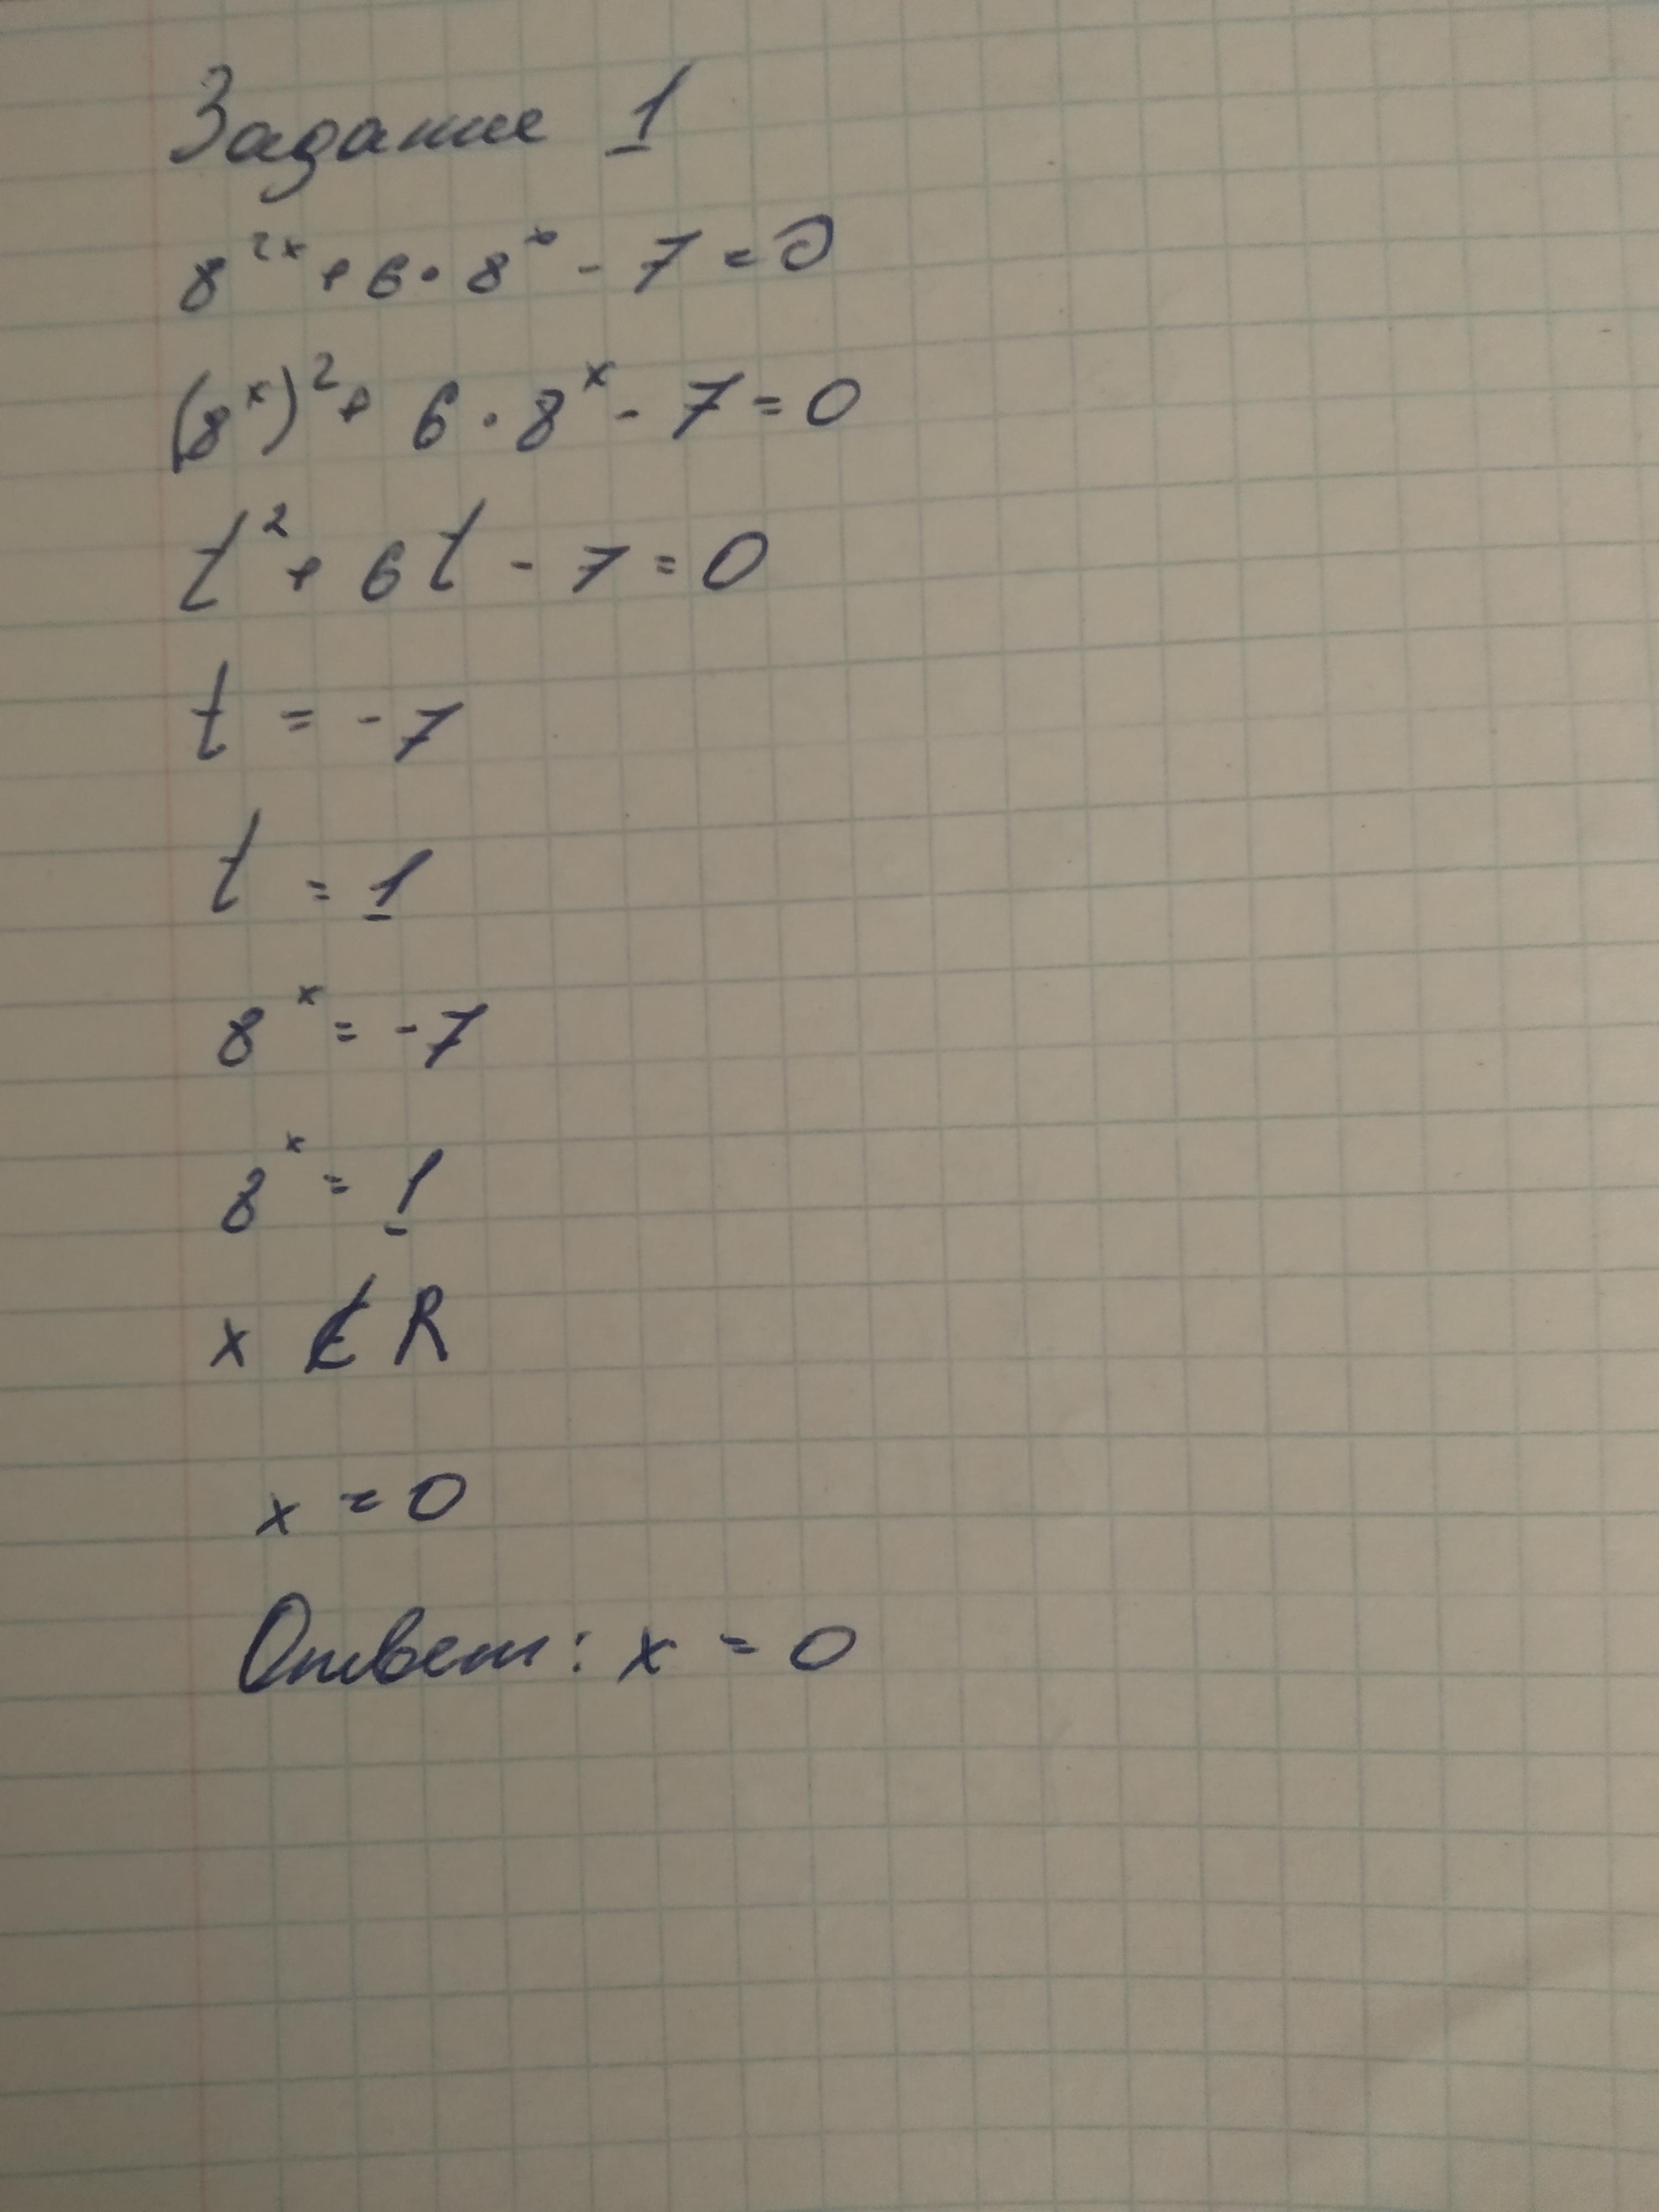 Задание 1
8^{2x} + 6 · 8^x - 7 = 0
(8^x)^2 + 6 · 8^x - 7 = 0
t^2 + 6t - 7 = 0
t = -7
t = 1
8^x = -7
8^x = 1
x ∉ R
x = 0
Ответ: x = 0